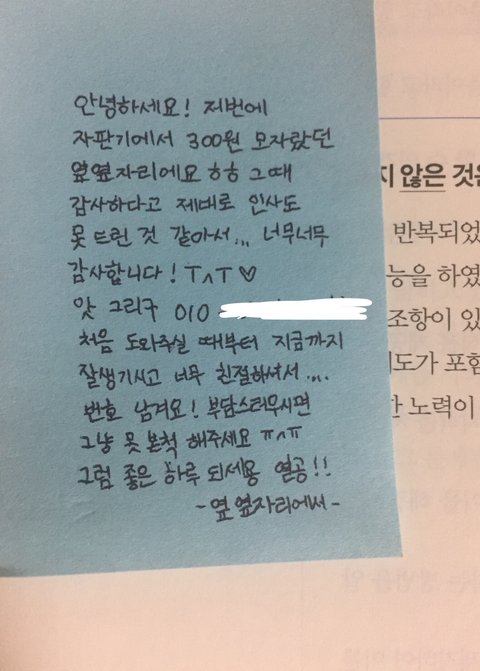 안녕하세요! 저번에
자판기에서 300원 모자랐던
옆옆자리에요 ㅎㅎ 그때
감사하다고 제대로 인사도
못 드린 것 같아서... 너무너무
감사합니다! ㅜ^ㅜ♡
앗 그리구 010
처음 도와주실 때부터 지금까지
잘생기시고 너무 친절하셔서....
번호 남겨요! 부담스러우시면
그냥 못 본척 해주세요 ㅠ^ㅠ
그럼 좋은 하루 되세용 열공!!
- 옆옆자리에서 -
않은 것은
반복되었
능을 하였
조항이 있
도가 포함
노력이